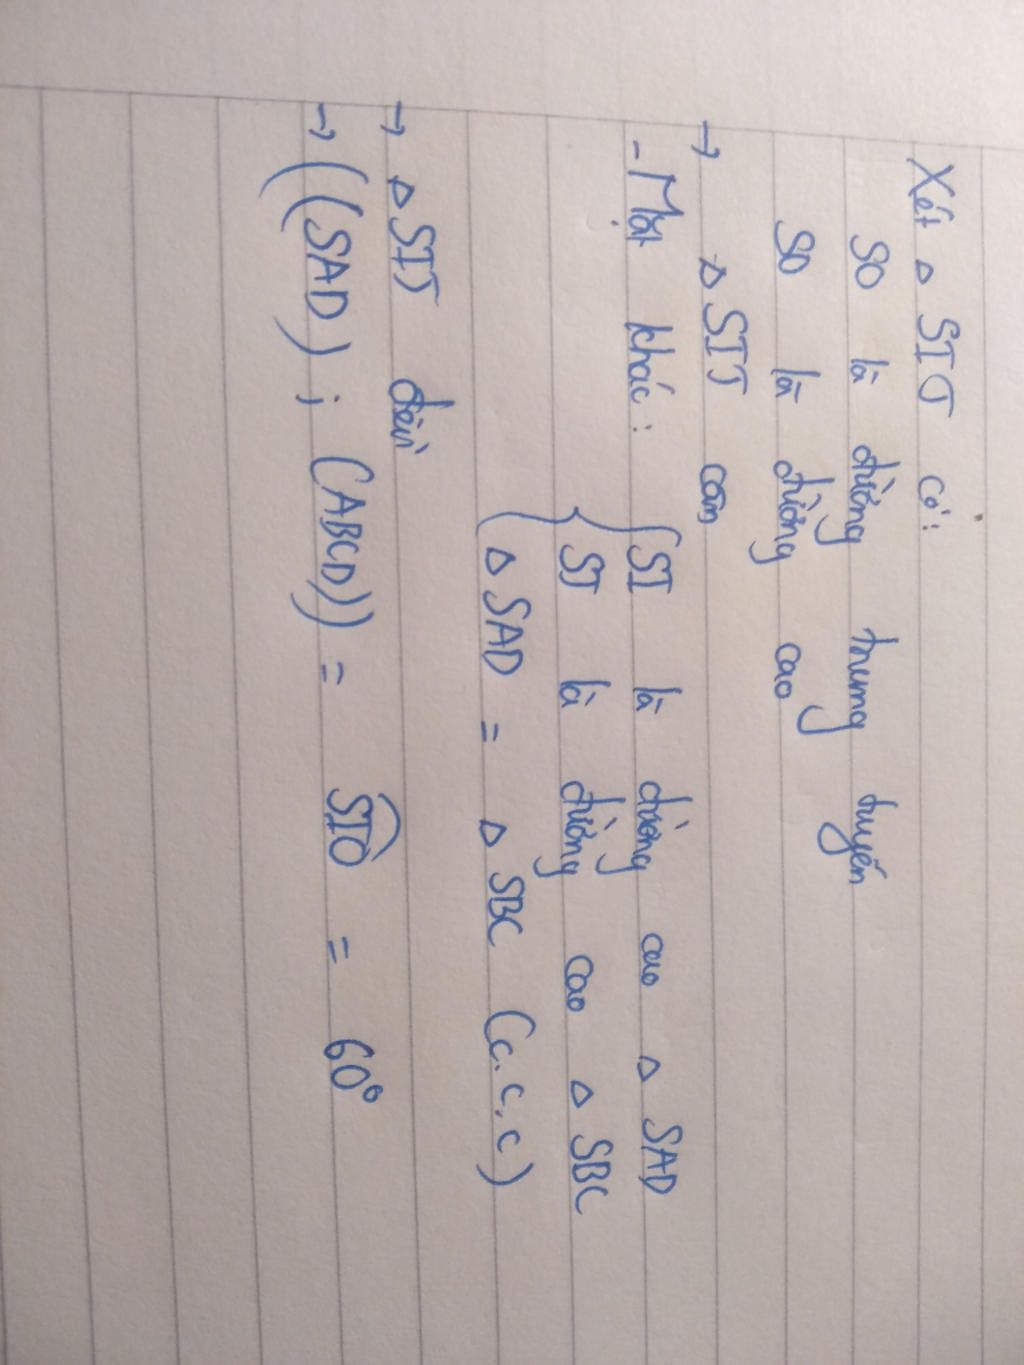 Xét △ SIJ có:
SO là đường trung tuyến
SO là đường cao
→ △ SIJ cân
- Mặt khác: { SI là đường cao △ SAD
SJ là đường cao △ SBC
△ SAD = △ SBC (c.c.c)
→ △ SIJ đều
→ ((SAD); (ABCD)) = SIO = 60°